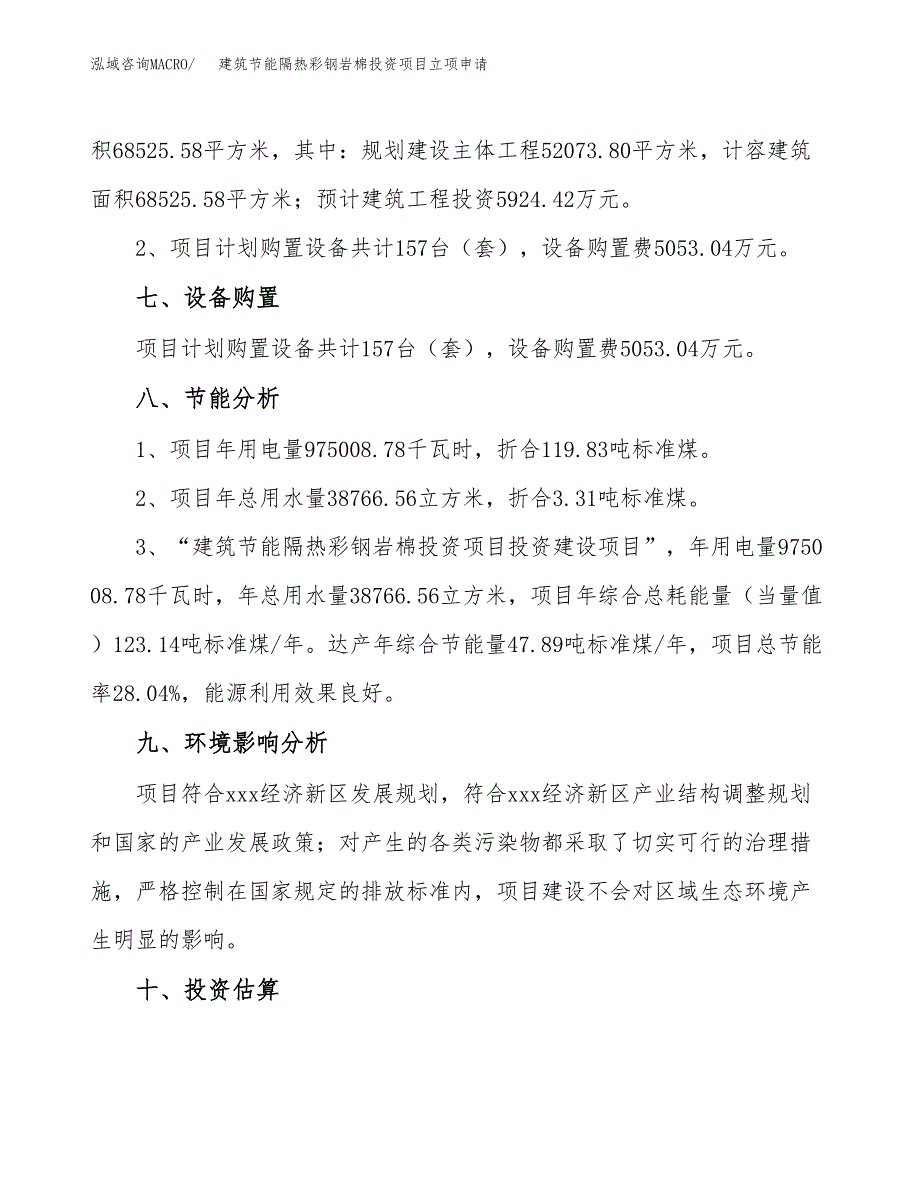 泓域咨询MACRO/ 建筑节能隔热彩钢岩棉投资项目立项申请
积68525.58平方米，其中：规划建设主体工程52073.80平方米，计容建筑
面积68525.58平方米；预计建筑工程投资5924.42万元。
2、项目计划购置设备共计157台（套），设备购置费5053.04万元。
七、设备购置
项目计划购置设备共计157台（套），设备购置费5053.04万元。
八、节能分析
1、项目年用电量975008.78千瓦时，折合119.83吨标准煤。
2、项目年总用水量38766.56立方米，折合3.31吨标准煤。
3、“建筑节能隔热彩钢岩棉投资项目投资建设项目”，年用电量9750
08.78千瓦时，年总用水量38766.56立方米，项目年综合总耗能量（当量值
）123.14吨标准煤/年。达产年综合节能量47.89吨标准煤/年，项目总节能
率28.04%，能源利用效果良好。
九、环境影响分析
项目符合xxx经济新区发展规划，符合xxx经济新区产业结构调整规划
和国家的产业发展政策；对产生的各类污染物都采取了切实可行的治理措
施，严格控制在国家规定的排放标准内，项目建设不会对区域生态环境产
生明显的影响。
十、投资估算